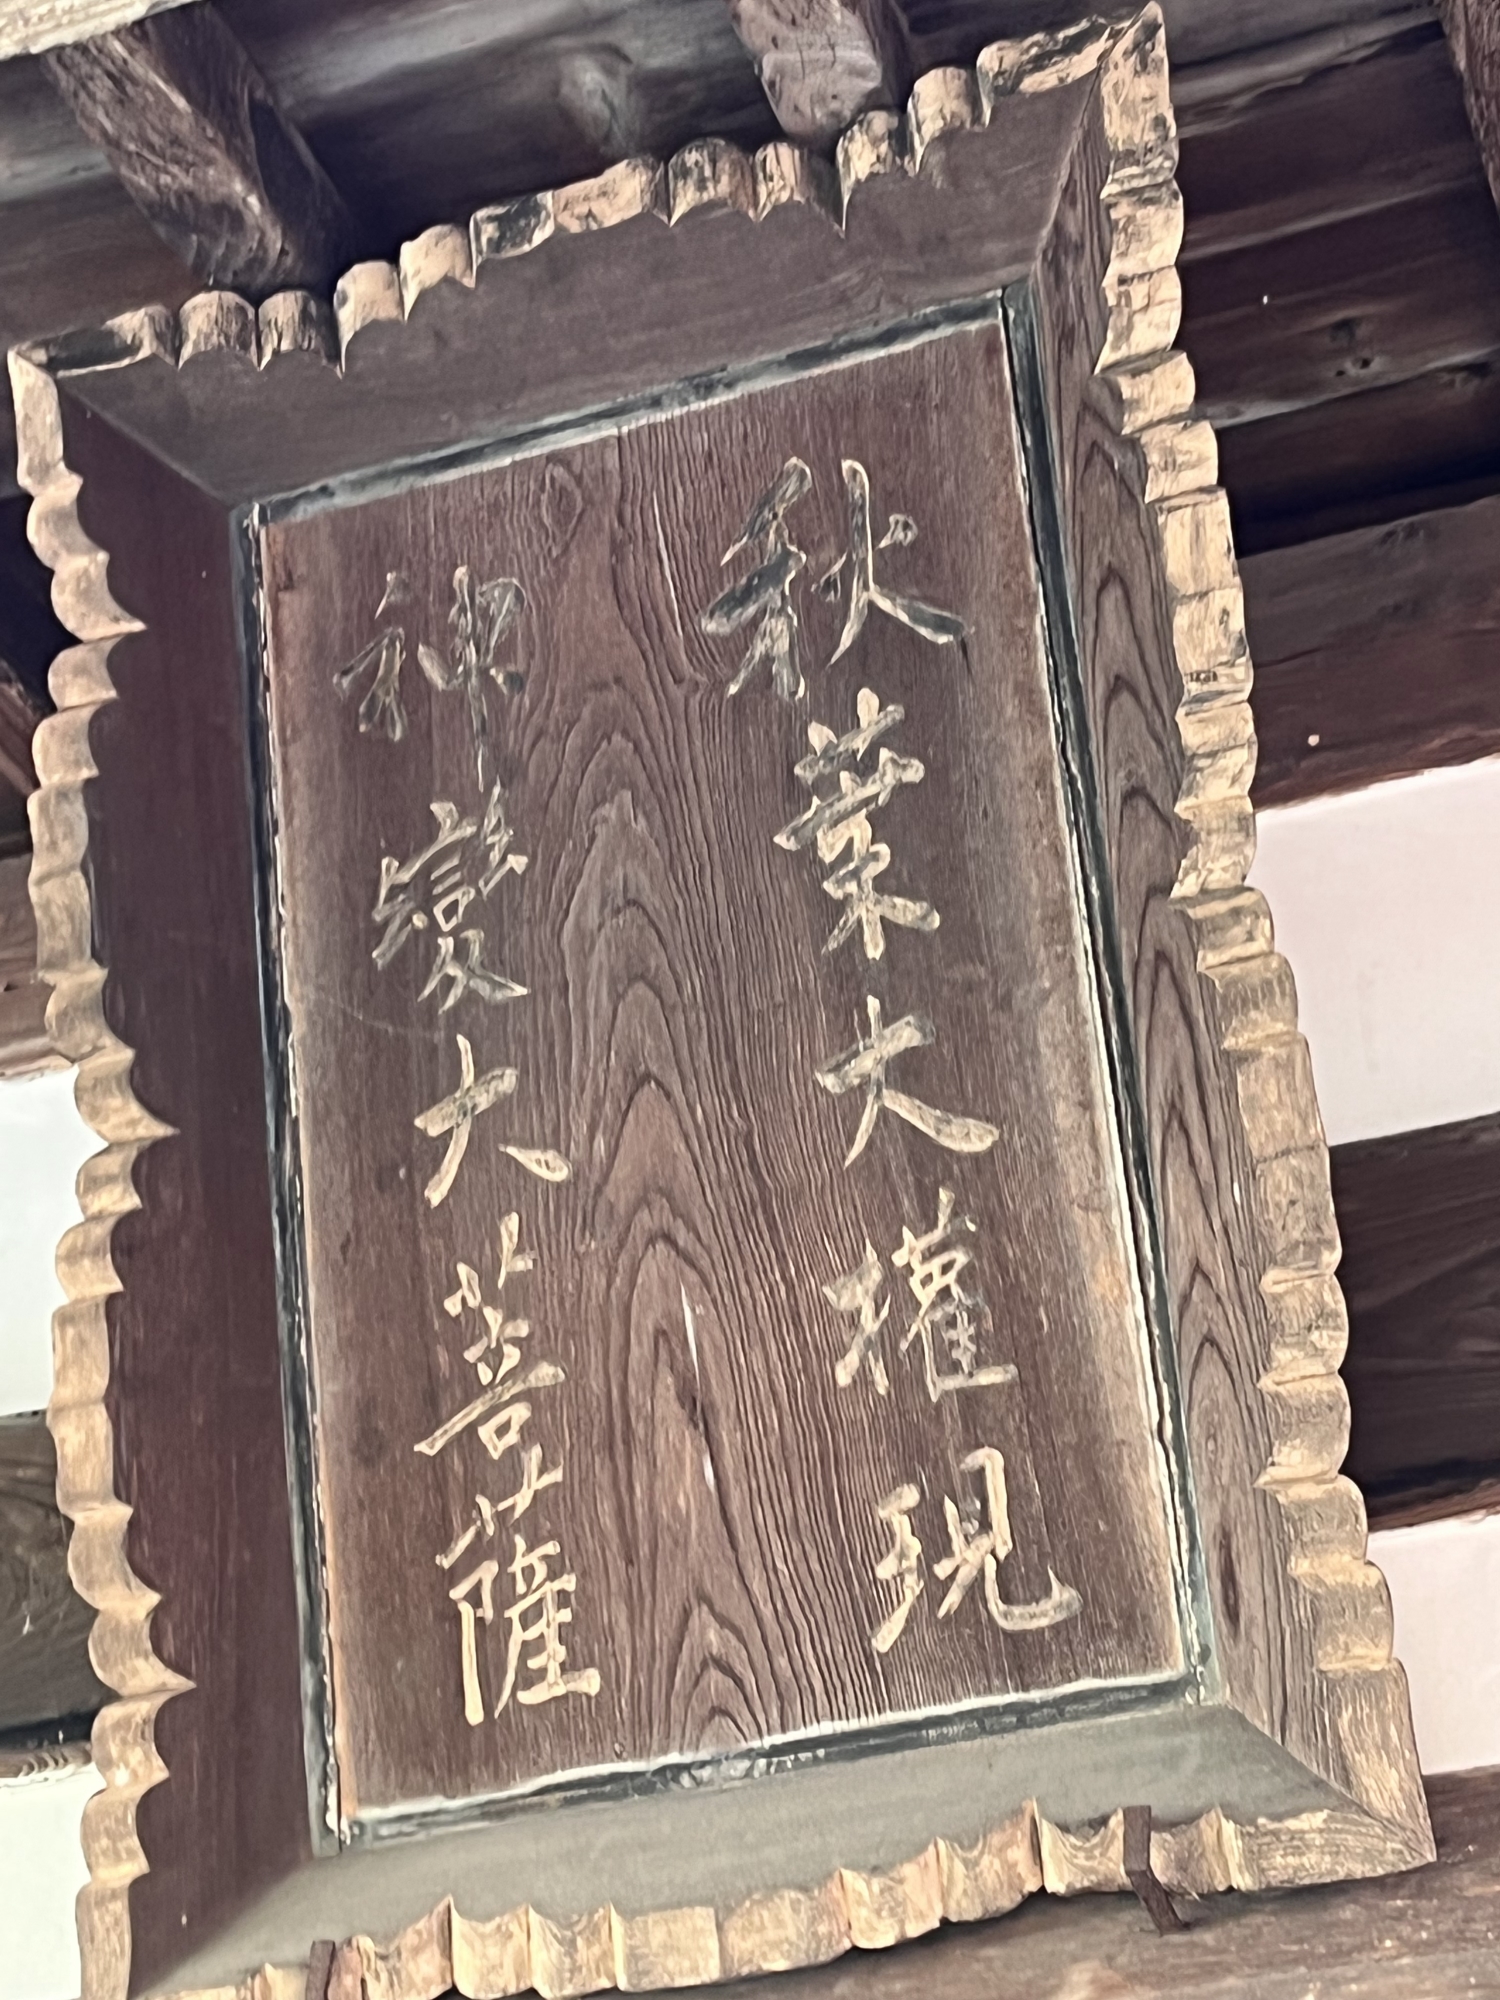 秋葉大權現
神變大菩薩